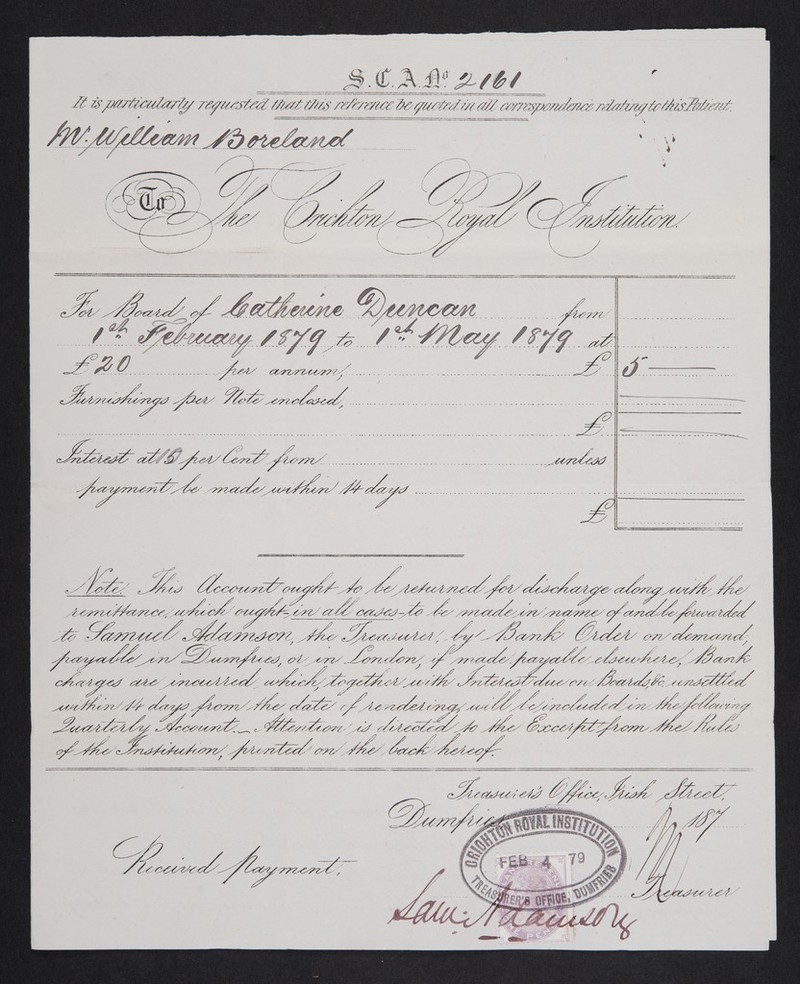 S.C.A No 2161
It is particularly requested that this reference be quoted in all correspondence relating to this Patient.
Mr. William Boreland
To The Crichton Royal Institution.
For Board of Catherine Duncan from
1st February 1879 to 1st May 1879 at
£20 per annum, £ 5 —
Furnishings per Note enclosed,
£
Interest at 5 per Cent from unless
payment be made within 14 days
£
Note. This Account ought to be returned for discharge along with the
remittance, which ought in all cases to be made in name of and be forwarded
to Samuel Adamson, the Treasurer, by Bank Order on demand,
payable in Dumfries, or in London, if made payable elsewhere, Bank
charges are incurred which, together with Interest due on Boards &c. unsettled
within 14 days from the date of rendering, will be included in the following
Quarterly Account. Attention is directed to the Excerpt from the Rules
of the Institution, printed on the back hereof.
Treasurer's Office, Irish Street,
Dumfries 187
CRICHTON ROYAL INSTITUTION
FEB 4 79
TREASURER'S OFFICE, DUMFRIES
Received Payment,
Treasurer
Saml. Adamson